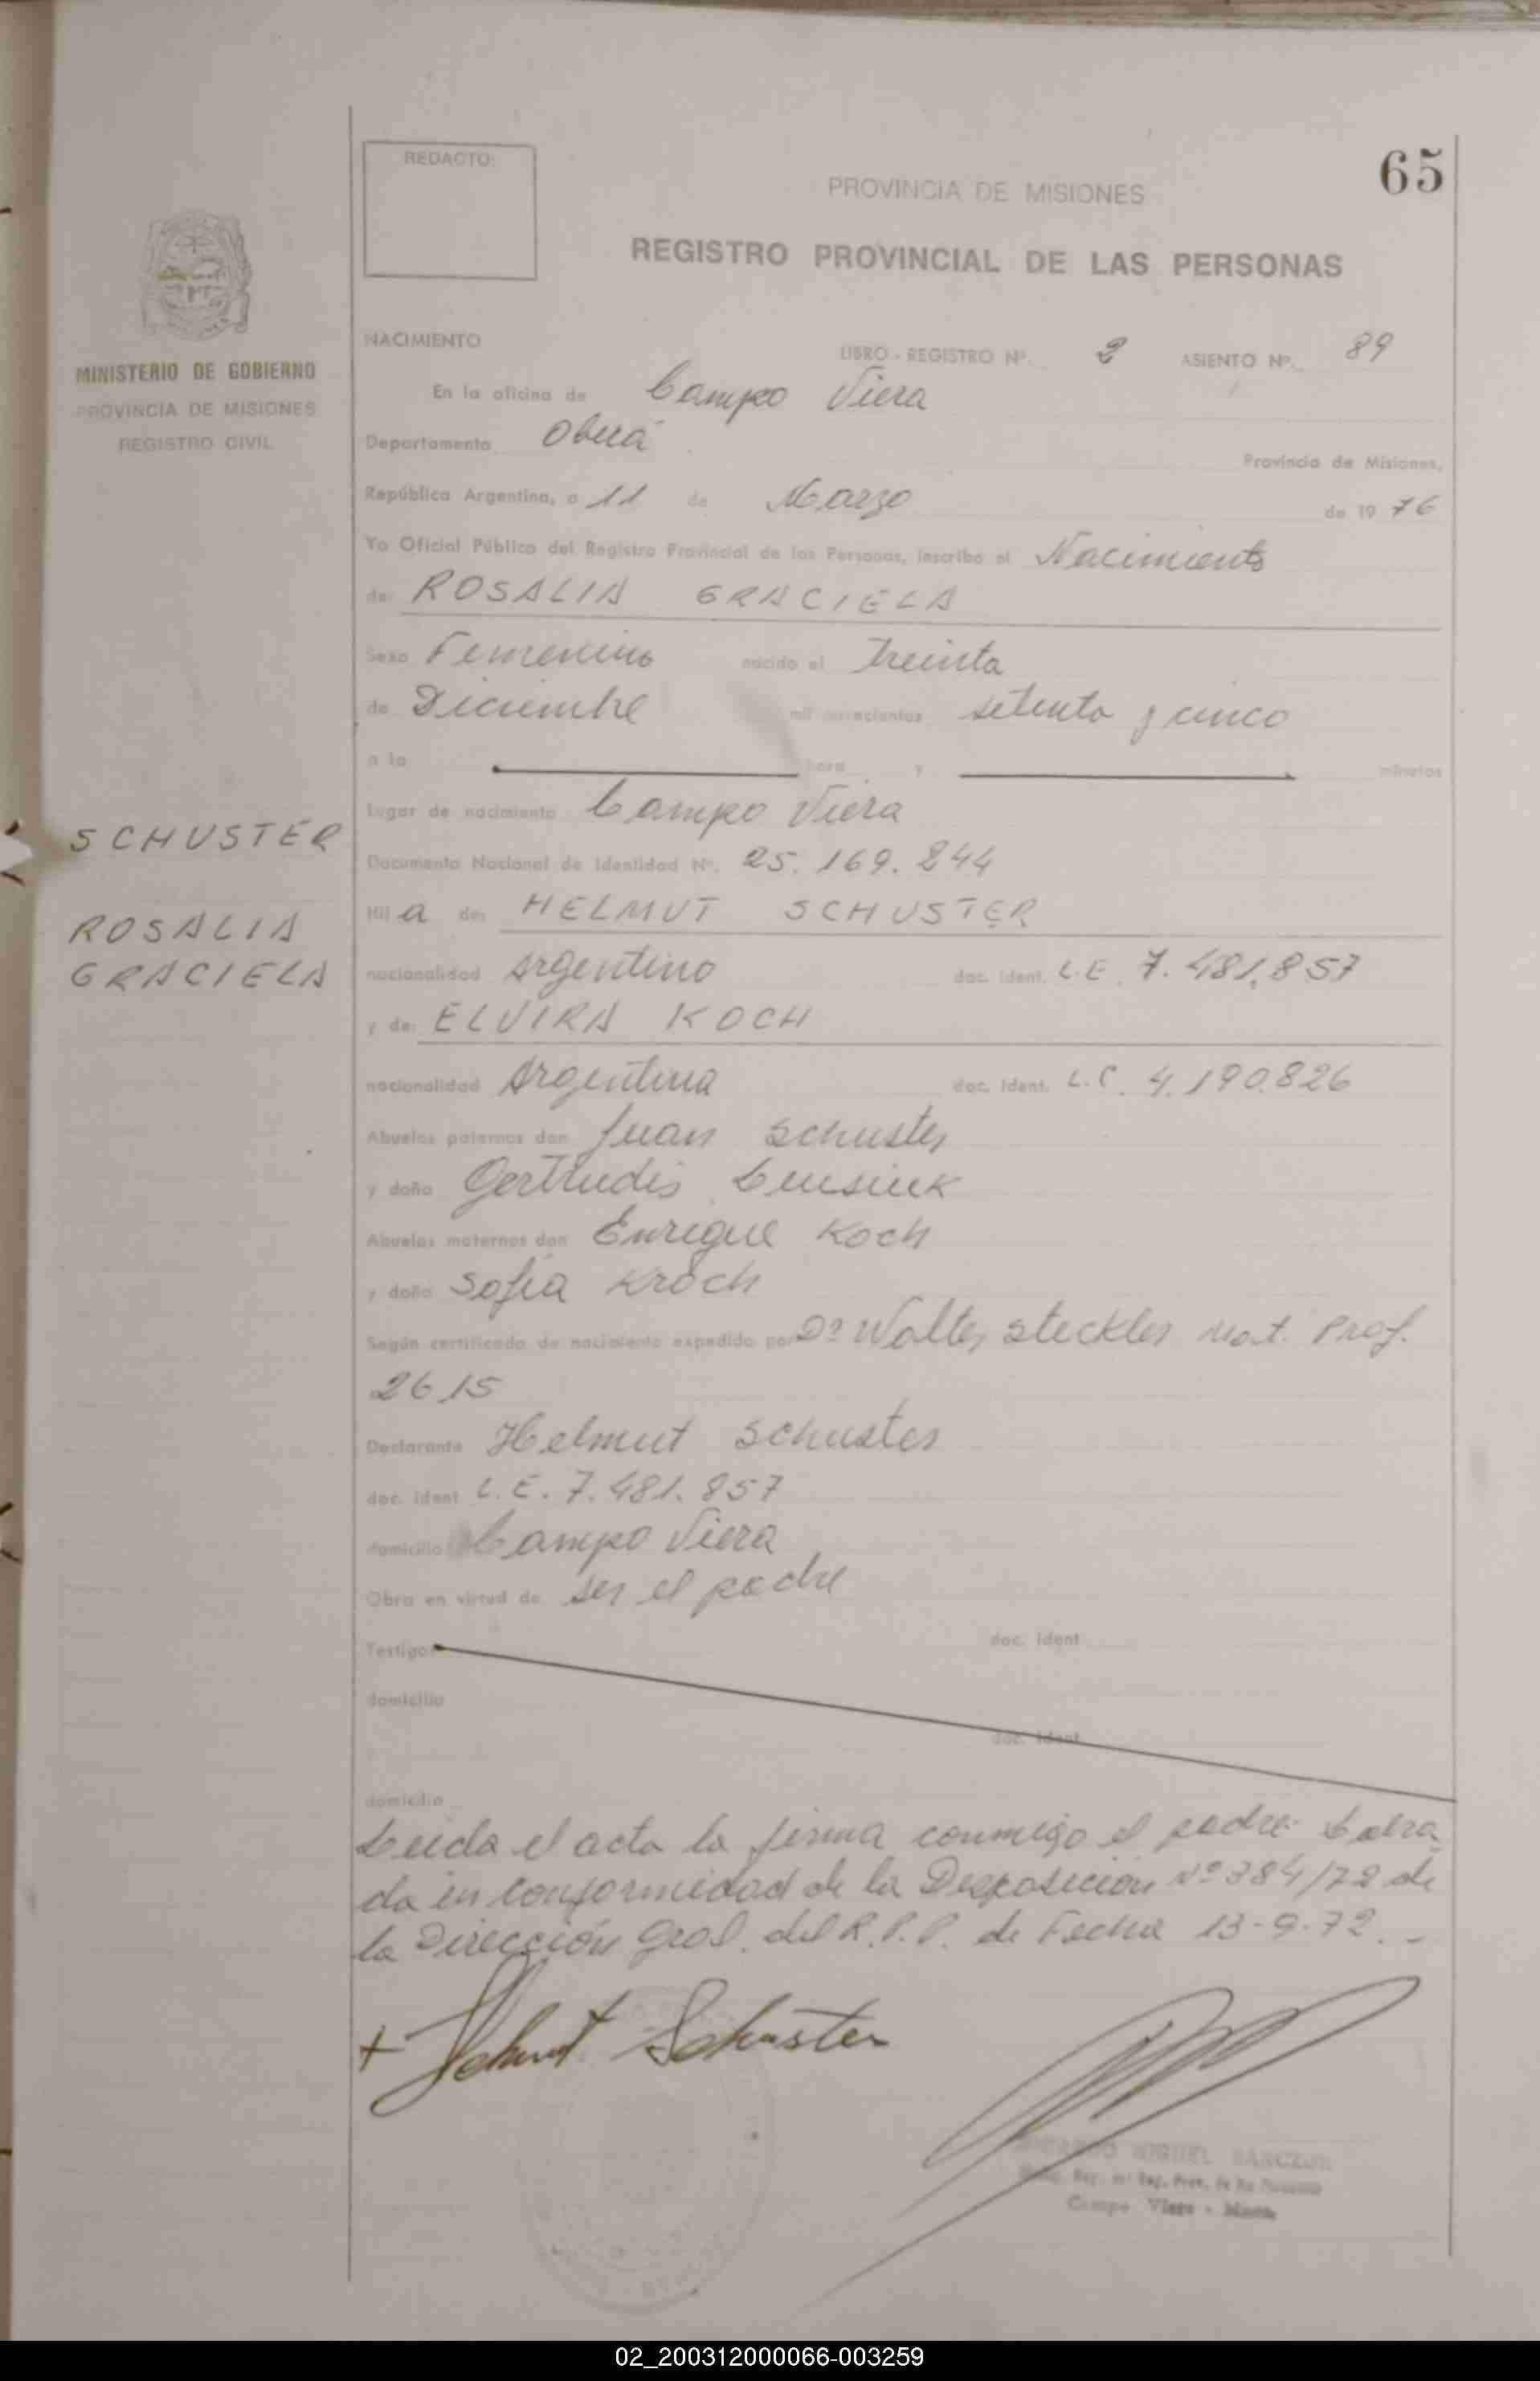 65
REDACTO:
PROVINCIA DE MISIONES
REGISTRO PROVINCIAL DE LAS PERSONAS
MINISTERIO DE GOBIERNO
PROVINCIA DE MISIONES
REGISTRO CIVIL
NACIMIENTO
LIBRO - REGISTRO Nº. 2 ASIENTO Nº. 89
En la oficina de Campo Viera
Departamento Oberá
Provincia de Misiones,
República Argentina, a 11 de Marzo de 19 76
Yo Oficial Público del Registro Provincial de las Personas, inscribo el Nacimiento
de ROSALIA GRACIELA
Sexo Femenino nacido el Treinta
de Diciembre mil novecientos setenta y cinco
a la hora y minutos
Lugar de nacimiento Campo Viera
SCHUSTER
ROSALIA
GRACIELA
Documento Nacional de Identidad Nº. 25.169.244
Hij a de: HELMUT SCHUSTER
nacionalidad Argentino doc. ident. L.E. 7.481.857
y de: ELVIRA KOCH
nacionalidad Argentina doc. ident. L.C. 4.190.826
Abuelos paternos don Juan Schuster
y doña Gertrudis
Abuelos maternos don Enrique Koch
y doña Sofia Kroch
Según certificado de nacimiento expedido por Dº Walter Steckler Mat. Prof.
2615
Declarante Helmut Schuster
doc. ident L.E. 7.481.857
domicilio Campo Viera
Obra en virtud de ser el padre
Testigos doc. ident
domicilio
doc. ident
domicilio
Leida el acta la firma conmigo el padre. Labra
da en conformidad de la Disposición Nº 384/72 de
la Dirección Gral. del R.P.P. de Fecha 13-9-72.-
+ Helmut Schuster
MIGUEL
Campo Viera -
02_200312000066-003259